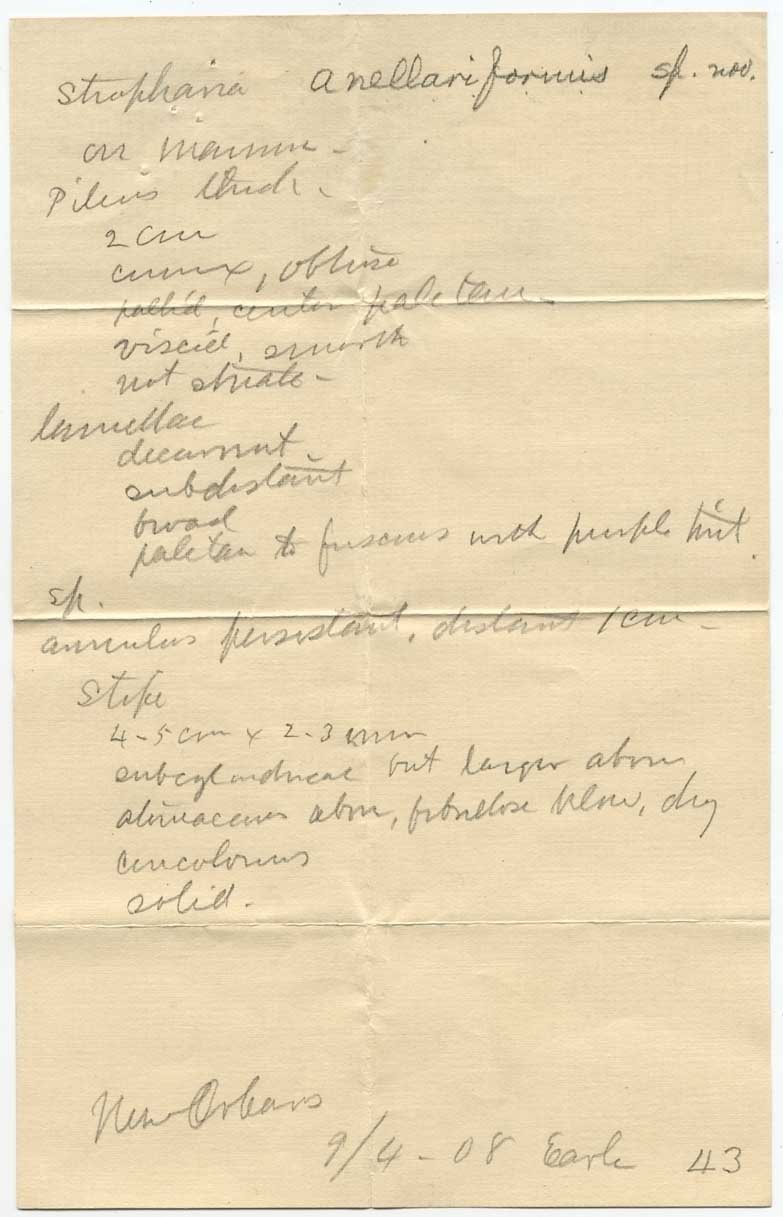 Stropharia anellariformis sp. nov.
on manure -
Pileus thick -
2 cm
convex, obtuse
pallid, center pale tan -
viscid, smooth
not striate -
lamellae
decurrent -
subdistant
broad
pale tan to fuscous with purple tint
sp.
annulus persistant, distant 1 cm -
Stipe
4-5 cm x 2-3 mm
subcylindrical but larger above
above, fibrillose below, dry
concolorous
solid.
New Orleans
9/4-08 Earle 43